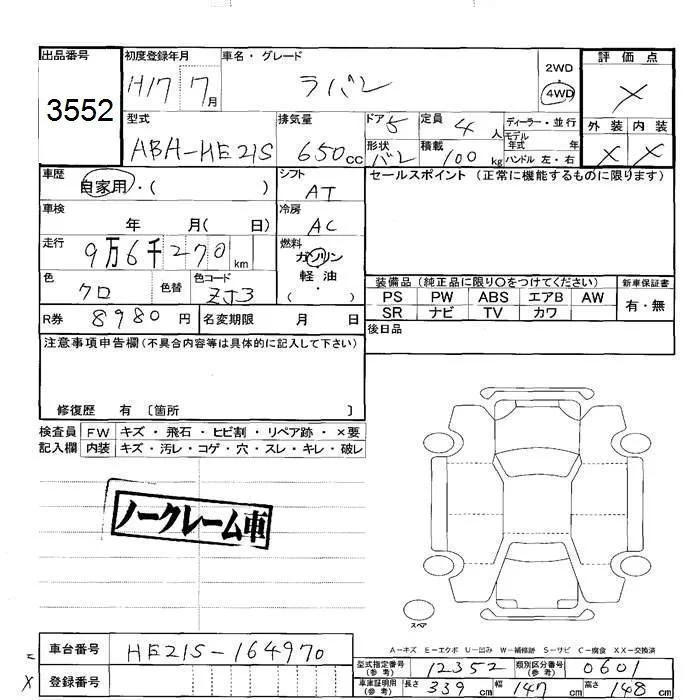 出品番号 初度登録年月 車名・グレード 評価点
3552 H17 7月 ラパン 2WD 4WD X
型式 排気量 ドア 5 定員 4人 ディーラー・並行 外装 内装
ABA-HE21S 650cc 形状 バン 積載 100kg モデル年式 年 ハンドル 左・右 X X
車歴 自家用・( ) シフト AT セールスポイント (正常に機能するものに限ります)
車検 年 月( 日) 冷房 AC
走行 9万6千270km 燃料 ガソリン・軽油・( )
色 クロ 色替 色コード ZJ3 装備品 (純正品に限り○をつけてください) 新車保証書
PS PW ABS エアB AW 有・無
SR ナビ TV カワ
R券 8980円 名変期限 月 日 後日品
注意事項申告欄(不具合内容等は具体的に記入して下さい)
修復歴 有 〔箇所 〕
検査員 FW キズ・飛石・ヒビ割・リペア跡・×要
記入欄 内装 キズ・汚レ・コゲ・穴・スレ・キレ・破レ
ノークレーム車
スペア
A-キズ E-エクボ U-凹み W-補修跡 S-サビ C-腐食 XX-交換済
車台番号 HE21S-164970 型式指定番号(参考) 12352 類別区分番号(参考) 0601
X 登録番号 車庫証明用(参考) 長さ 339cm 幅 147cm 高さ 148cm